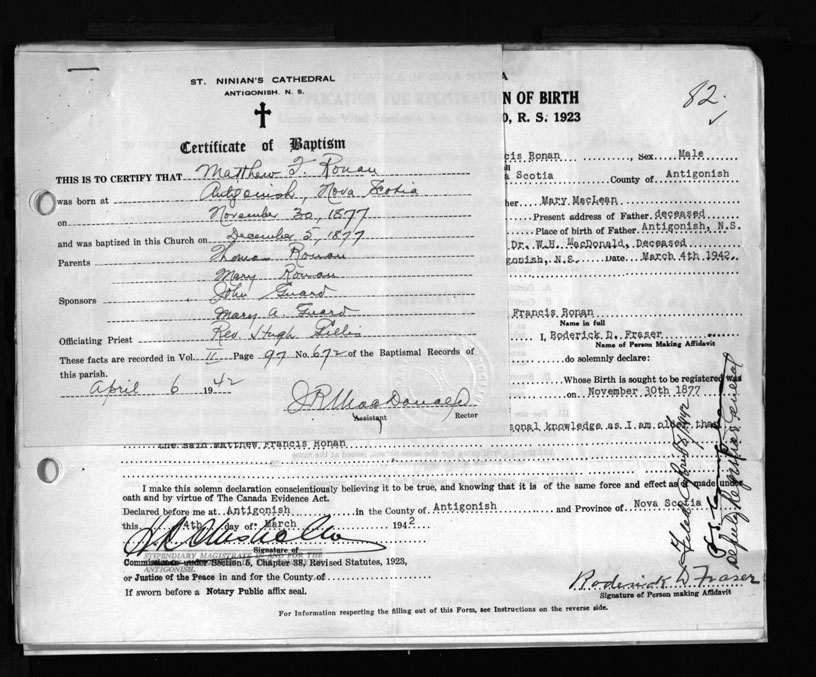 ST. NINIAN'S CATHEDRAL
ANTIGONISH, N. S.
Certificate of Baptism
THIS IS TO CERTIFY THAT Matthew F. Ronan
was born at Antigonish, Nova Scotia
on November 30, 1877
and was baptized in this Church on December 5, 1877
Parents Thomas Ronan
Mary Ronan
Sponsors John Guard
Mary A. Guard
Officiating Priest Rev. Hugh Gillis
These facts are recorded in Vol. II Page 97 No. 672 of the Baptismal Records of
this parish.
April 6 1942
J R MacDonald
Assistant Rector
N OF BIRTH
, R. S. 1923
82
cis Ronan, Sex Male
Scotia County of Antigonish
her Mary MacLean
Present address of Father deceased
Place of birth of Father Antigonish, N.S.
Dr. W.H. MacDonald, Deceased
gonish, N.S. Date March 4th 1942.
Francis Ronan
Name in full
I, Roderick D. Fraser
Name of Person Making Affidavit
do solemnly declare:
Whose Birth is sought to be registered was
on November 30th 1877
sonal knowledge as I am older than
the said Matthew Francis Ronan
I make this solemn declaration conscientiously believing it to be true, and knowing that it is of the same force and effect as if made under
oath and by virtue of The Canada Evidence Act.
Declared before me at Antigonish in the County of Antigonish and Province of Nova Scotia
this 4th day of March 1942
Signature of
STIPENDIARY MAGISTRATE IN AND FOR THE
Commissioner under Section 5, Chapter 38, Revised Statutes, 1923,
ANTIGONISH.
or Justice of the Peace in and for the County of
If sworn before a Notary Public affix seal.
Roderick D Fraser
Signature of Person making Affidavit
For Information respecting the filling out of this Form, see Instructions on the reverse side.
Deputy Registrar General